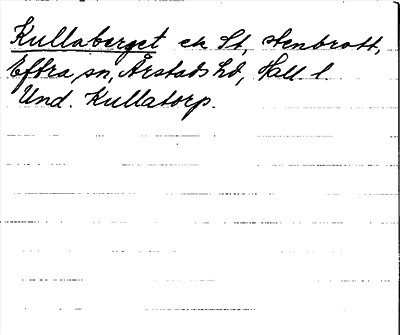 Kullaberget ek St, stenbrott,
Eftra sn, Årstads hd, Hall. l.
Und. Kullatorp.